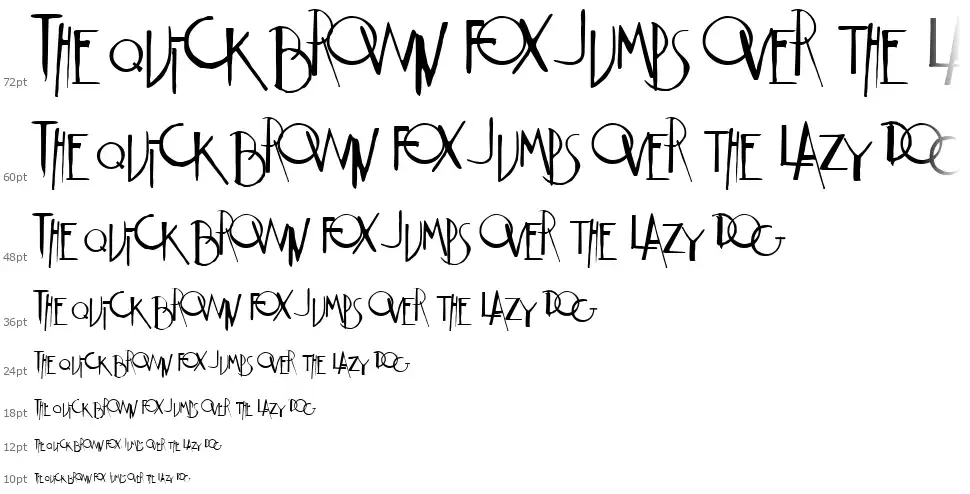 72pt THE QUICK BROWN FOX JUMPS OVER THE LA
60pt THE QUICK BROWN FOX JUMPS OVER THE LAZY DOG
48pt THE QUICK BROWN FOX JUMPS OVER THE LAZY DOG
36pt THE QUICK BROWN FOX JUMPS OVER THE LAZY DOG
24pt THE QUICK BROWN FOX JUMPS OVER THE LAZY DOG
18pt THE QUICK BROWN FOX JUMPS OVER THE LAZY DOG
12pt THE QUICK BROWN FOX JUMPS OVER THE LAZY DOG
10pt THE QUICK BROWN FOX JUMPS OVER THE LAZY DOG